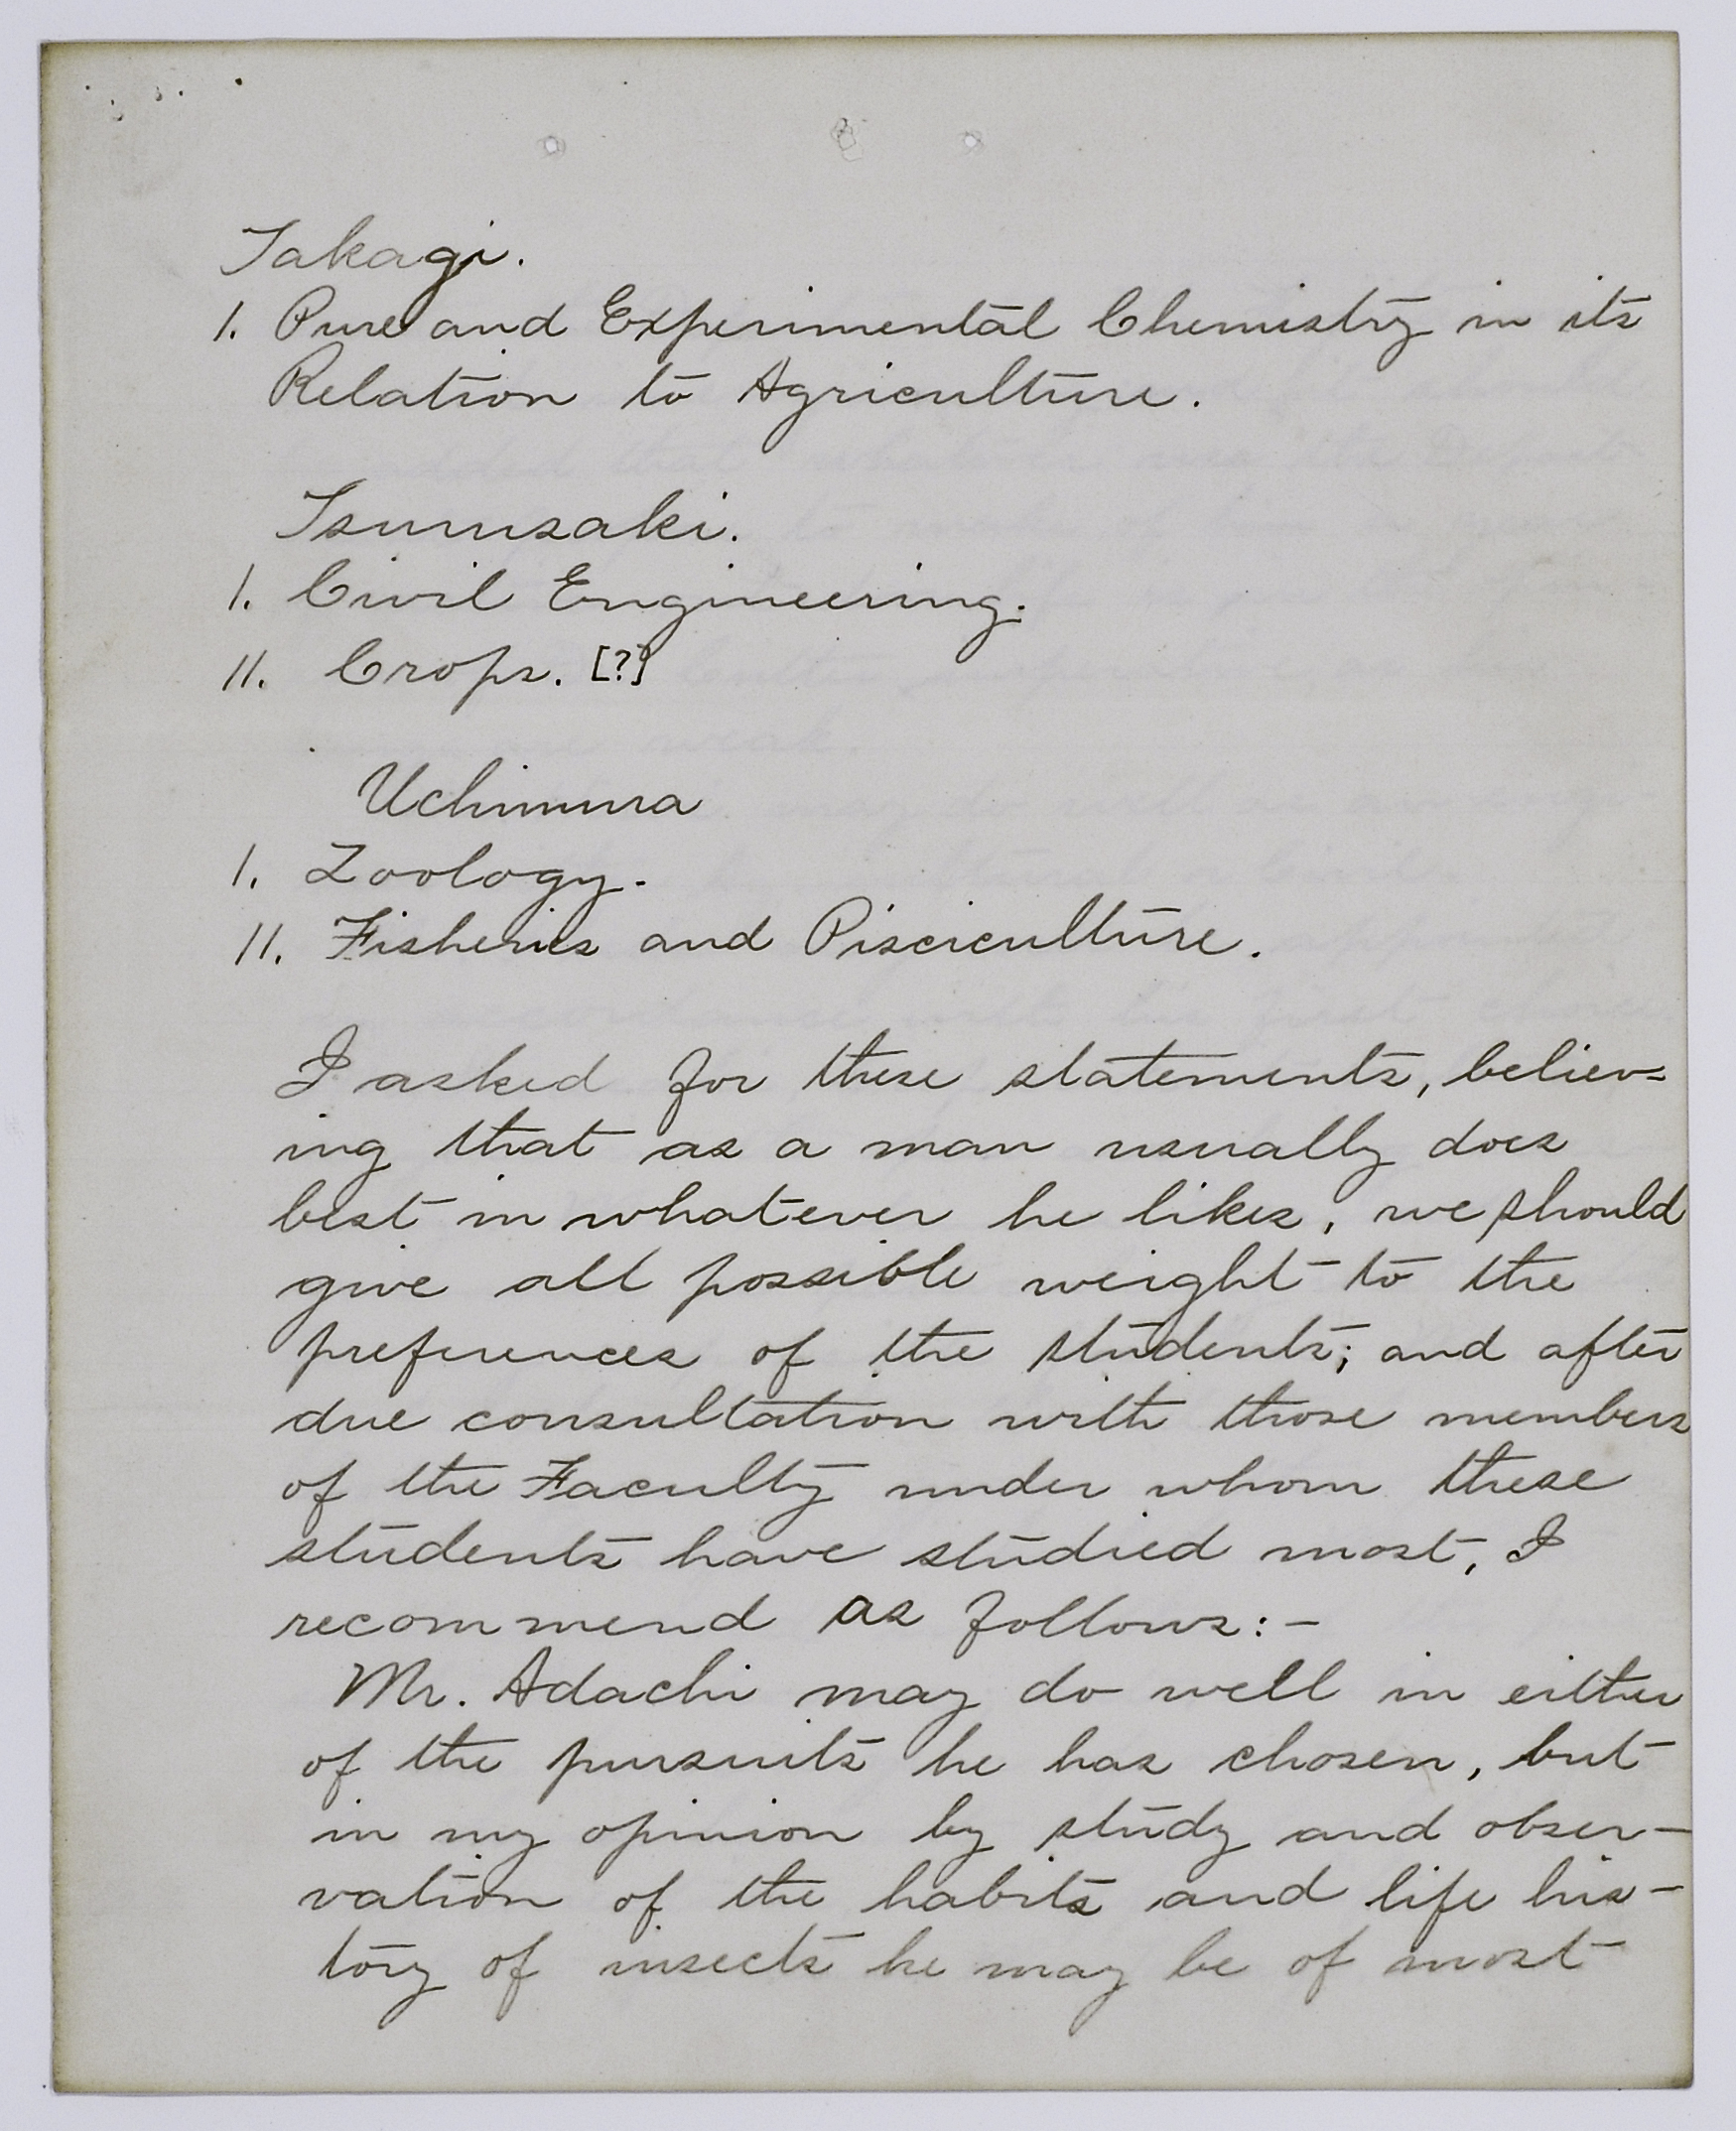 Takagi.
I. Pure and Experimental Chemistry in its
Relation to Agriculture.
Tsurusaki.
I. Civil Engineering.
II. Crops. [?]
Uchimura
I. Zoology.
II. Fisheries and Pisciculture.
I asked for these statements, believ=
ing that as a man usually does
best in whatever he likes, we should
give all possible weight to the
preferences of the students; and after
due consultation with those members
of the Faculty under whom these
students have studied most, I
recommend as follows:-
Mr. Adachi may do well in either
of the pursuits he has chosen, but
in my opinion by study and obser-
vation of the habits and life his-
tory of insects he may be of most